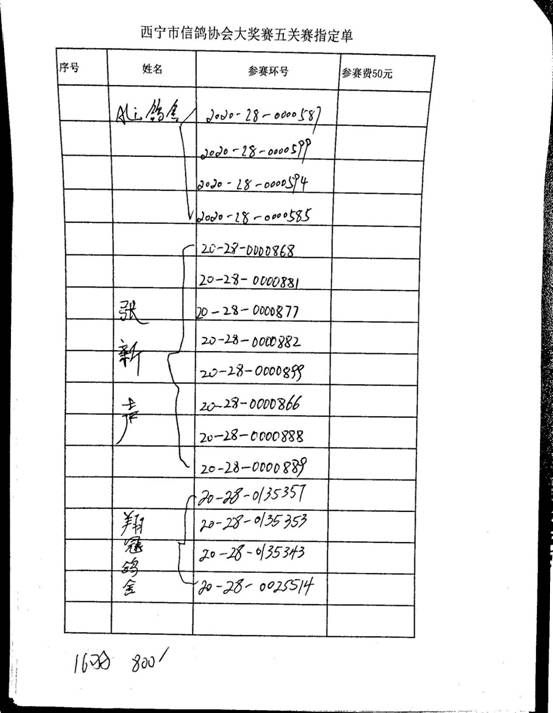 西宁市信鸽协会大奖赛五关赛指定单
序号 姓名 参赛环号 参赛费50元
2020-28-0000587
2020-28-0000599
2020-28-0000594
2020-28-0000585
20-28-0000868
20-28-0000881
张 20-28-0000877
新 20-28-0000882
20-28-0000899
20-28-0000866
20-28-0000888
20-28-0000889
翔 20-28-0135357
冠 20-28-0135353
鸽 20-28-0135343
舍 20-28-0025514
16羽 800/